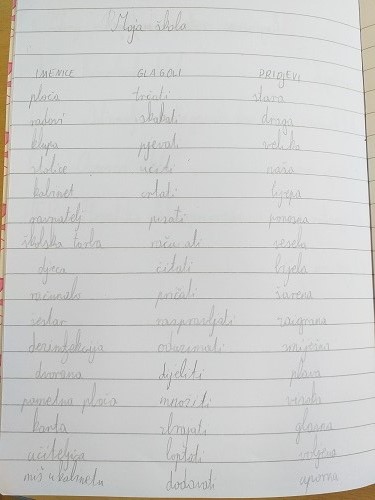 Moja škola
IMENICE GLAGOLI PRIDJEVI
ploča trčati stara
radovi skakati draga
klupa pjevati velika
stolice učiti naša
kabinet crtati lijepa
ravnatelj pisati ponosna
školska torba računati vesela
djeca čitati bijela
računalo pričati šarena
raspravljati zaigrana
dezinfekcija smiješna
dvorana dijeliti plava
pametna ploča množiti
karta zbrajati glasna
učiteljica voljena
miš u kabinetu dodavati uporna